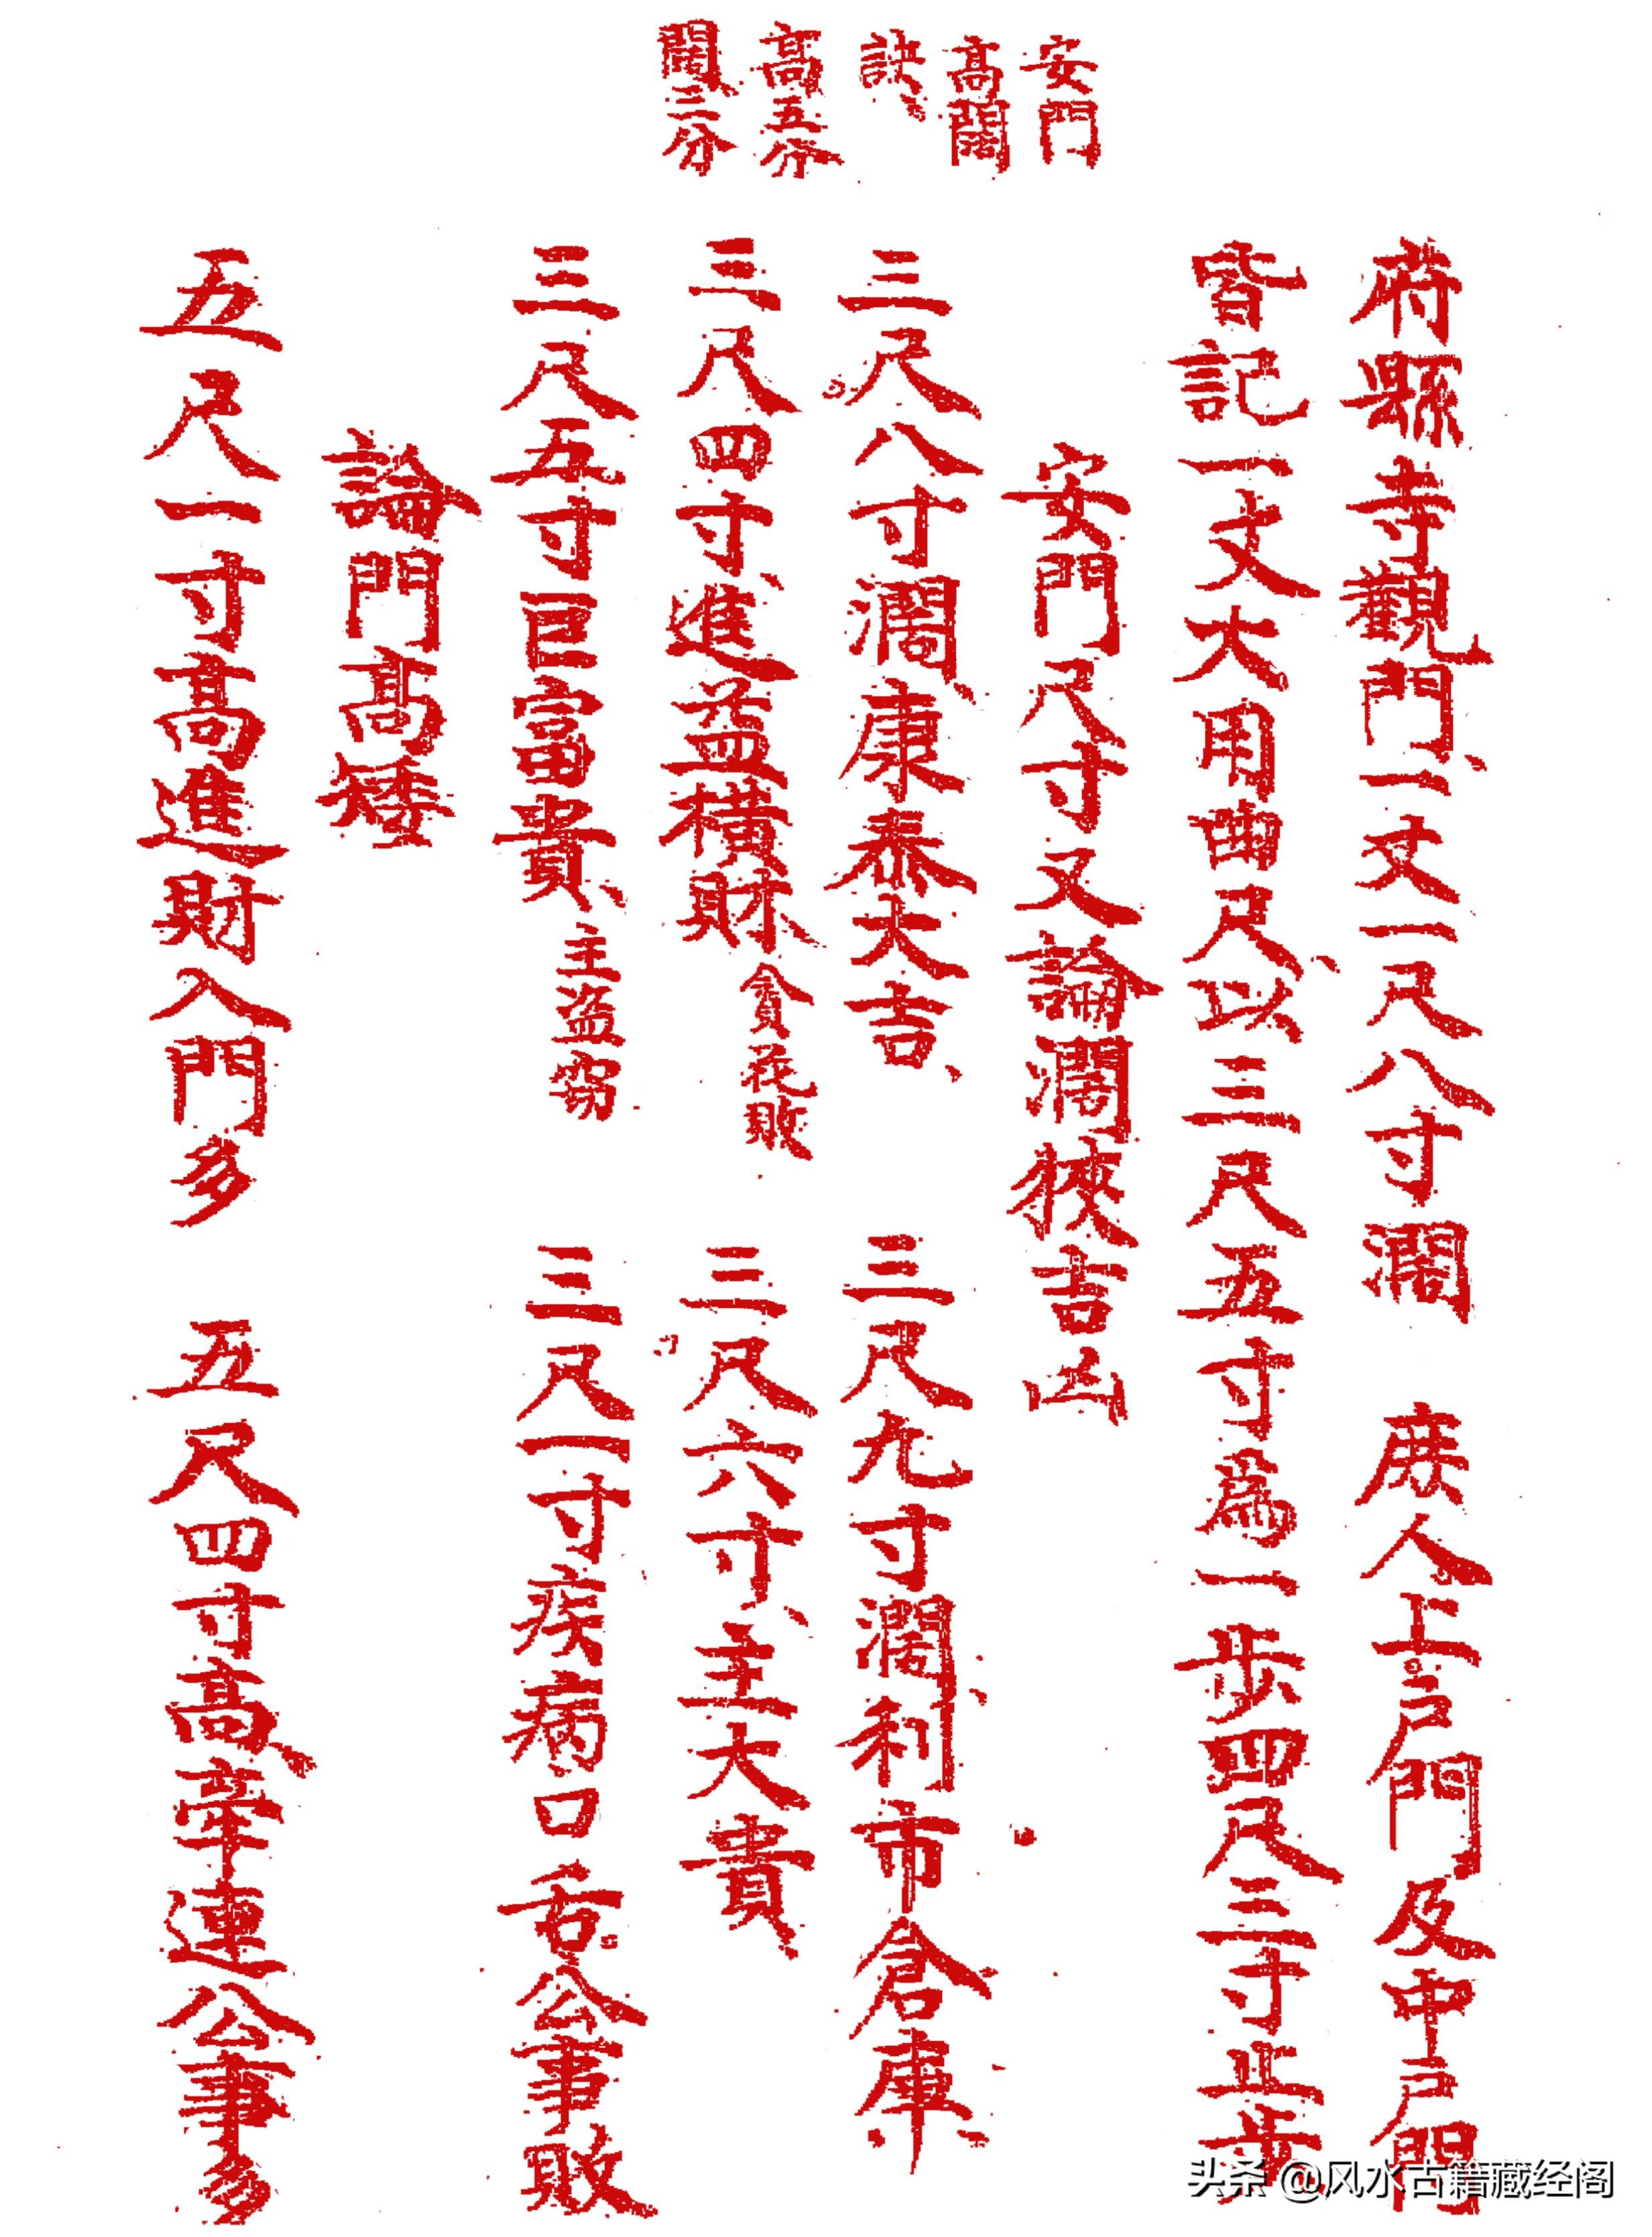 安門
高闊
訣、
高五分
闊三分
府縣寺觀門、一丈一尺八寸濶 庶人上戶門及中戶門
皆記一丈大用曲尺、以三尺五寸爲一步四尺三寸止步
安門尺寸又論濶狹吉凶
三尺八寸濶、康泰大吉、 三尺九寸濶、利市倉庫、
三尺四寸、進益橫財貪花敗 三尺六寸、主大貴、
三尺五寸巨富貴、主盜窃 三尺一寸疾病口舌公事敗
論門高矮
五尺一寸高進財入門多 五尺四寸高、牽連公事多
头条 @风水古籍藏经阁